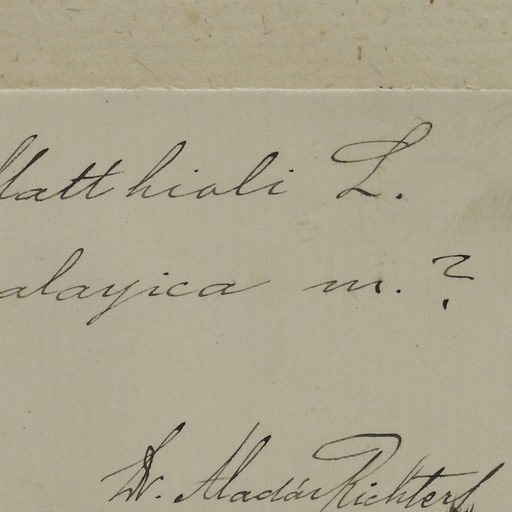 Matthioli L.
alayica m.?
Dr. Aladár Richter